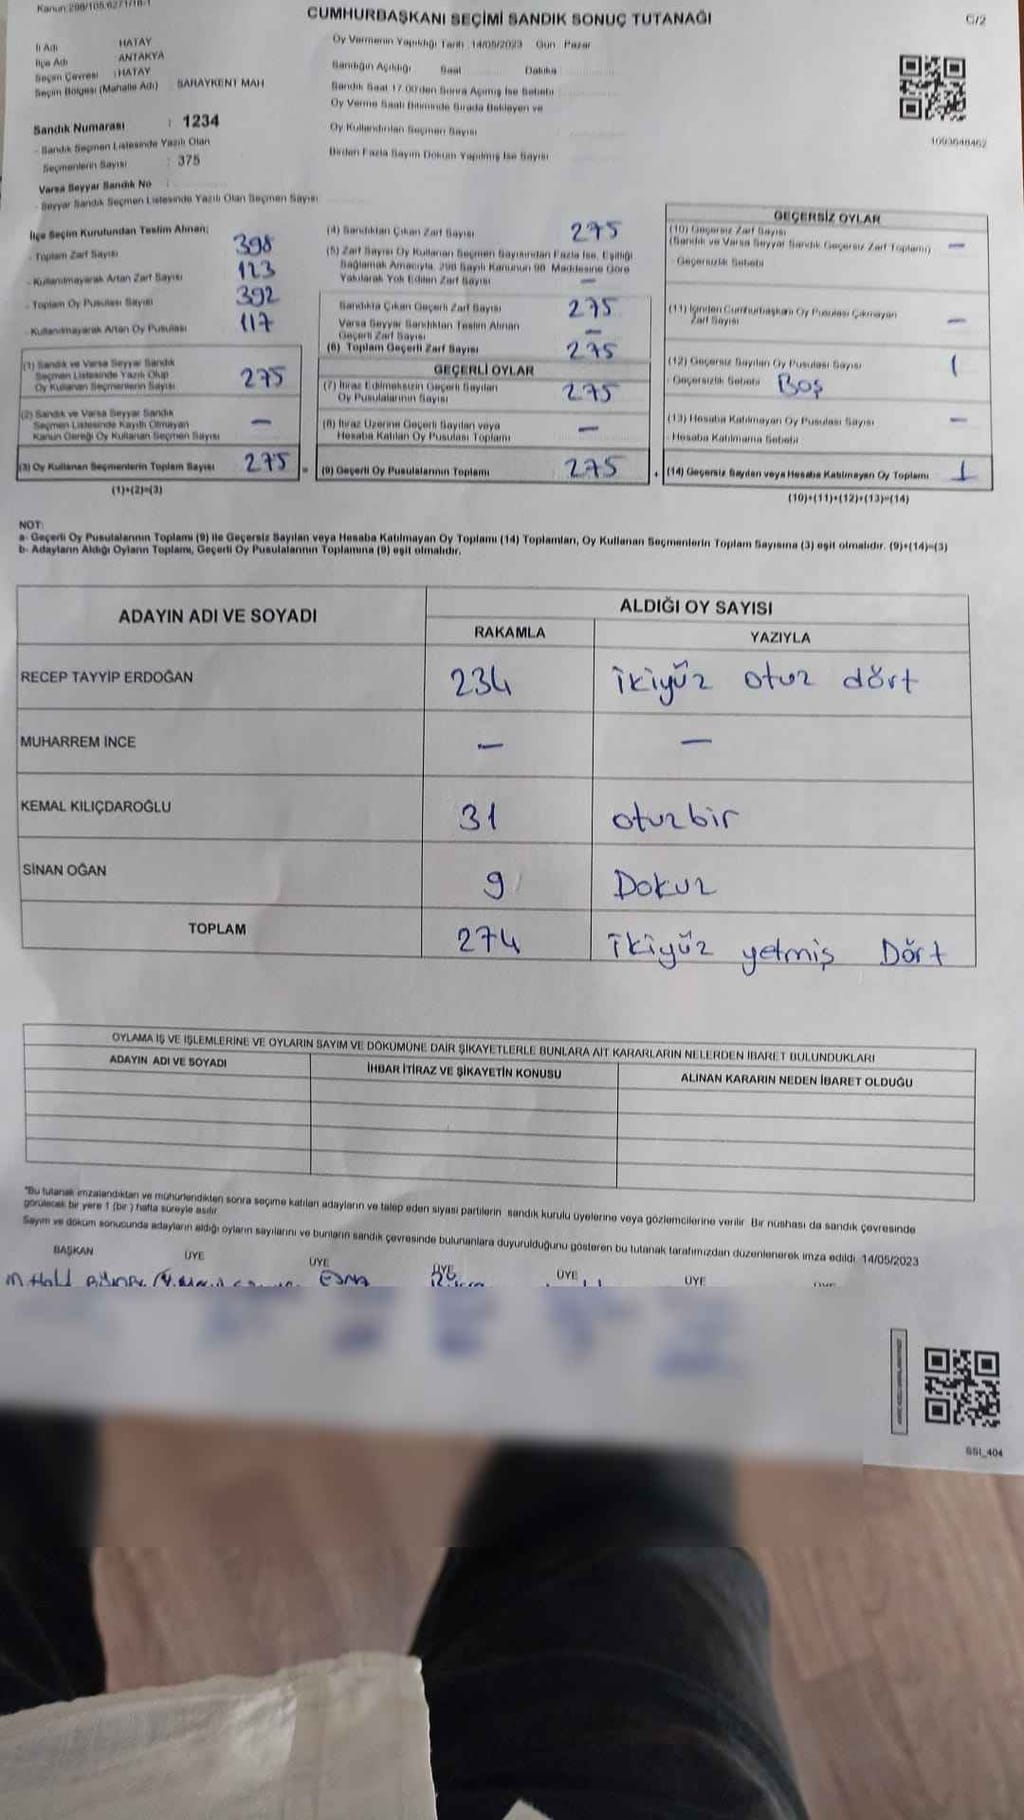 Kanun:298/105,6271/18-1
CUMHURBAŞKANI SEÇİMİ SANDIK SONUÇ TUTANAĞI
C/2
İl Adı HATAY
İlçe Adı ANTAKYA
Seçim Çevresi : HATAY
Seçim Bölgesi (Mahalle Adı) SARAYKENT MAH
Sandık Numarası : 1234
- Sandık Seçmen Listesinde Yazılı Olan
Seçmenlerin Sayısı : 375
Varsa Seyyar Sandık No :
- Seyyar Sandık Seçmen Listesinde Yazılı Olan Seçmen Sayısı
Oy Vermenin Yapıldığı Tarih : 14/05/2023 Gün Pazar
Sandığın Açıldığı Saat Dakika
Sandık Saat 17.00'den Sonra Açılmış İse Sebebi
Oy Verme Saati Bitiminde Sırada Bekleyen ve
Oy Kullandırılan Seçmen Sayısı
Birden Fazla Sayım Döküm Yapılmış İse Sayısı
İlçe Seçim Kurulundan Teslim Alınan;
- Toplam Zarf Sayısı 398
- Kullanılmayarak Artan Zarf Sayısı 123
- Toplam Oy Pusulası Sayısı 392
- Kullanılmayarak Artan Oy Pusulası 117
(1) Sandık ve Varsa Seyyar Sandık
Seçmen Listesinde Yazılı Olup
Oy Kullanan Seçmenlerin Sayısı 275
(2) Sandık ve Varsa Seyyar Sandık
Seçmen Listesinde Kayıtlı Olmayan
Kanun Gereği Oy Kullanan Seçmen Sayısı —
(3) Oy Kullanan Seçmenlerin Toplam Sayısı 275 =
(1)+(2)=(3)
(4) Sandıktan Çıkan Zarf Sayısı 275
(5) Zarf Sayısı Oy Kullanan Seçmen Sayısından Fazla İse, Eşitliği
Sağlamak Amacıyla, 298 Sayılı Kanunun 98. Maddesine Göre
Yakılarak Yok Edilen Zarf Sayısı —
Sandıkta Çıkan Geçerli Zarf Sayısı 275
Varsa Seyyar Sandıktan Teslim Alınan
Geçerli Zarf Sayısı —
(6) Toplam Geçerli Zarf Sayısı 275
GEÇERLİ OYLAR
(7) İtiraz Edilmeksizin Geçerli Sayılan
Oy Pusulalarının Sayısı 275
(8) İtiraz Üzerine Geçerli Sayılan veya
Hesaba Katılan Oy Pusulası Toplamı —
(9) Geçerli Oy Pusulalarının Toplamı 275 +
GEÇERSİZ OYLAR
(10) Geçersiz Zarf Sayısı
(Sandık ve Varsa Seyyar Sandık Geçersiz Zarf Toplamı) —
Geçersizlik Sebebi
(11) İçinden Cumhurbaşkanı Oy Pusulası Çıkmayan
Zarf Sayısı —
(12) Geçersiz Sayılan Oy Pusulası Sayısı 1
- Geçersizlik Sebebi Boş
(13) Hesaba Katılmayan Oy Pusulası Sayısı —
- Hesaba Katılmama Sebebi
(14) Geçersiz Sayılan veya Hesaba Katılmayan Oy Toplamı 1
(10)+(11)+(12)+(13)=(14)
NOT:
a- Geçerli Oy Pusulalarının Toplamı (9) ile Geçersiz Sayılan veya Hesaba Katılmayan Oy Toplamı (14) Toplamları, Oy Kullanan Seçmenlerin Toplam Sayısına (3) eşit olmalıdır. (9)+(14)=(3)
b- Adayların Aldığı Oyların Toplamı, Geçerli Oy Pusulalarının Toplamına (9) eşit olmalıdır.
ADAYIN ADI VE SOYADI ALDIĞI OY SAYISI
RAKAMLA YAZIYLA
RECEP TAYYİP ERDOĞAN 234 ikiyüz otuz dört
MUHARREM İNCE — —
KEMAL KILIÇDAROĞLU 31 otuzbir
SİNAN OĞAN 9 Dokuz
TOPLAM 274 ikiyüz yetmiş Dört
OYLAMA İŞ VE İŞLEMLERİNE VE OYLARIN SAYIM VE DÖKÜMÜNE DAİR ŞİKAYETLERLE BUNLARA AİT KARARLARIN NELERDEN İBARET BULUNDUKLARI
ADAYIN ADI VE SOYADI İHBAR İTİRAZ VE ŞİKAYETİN KONUSU ALINAN KARARIN NEDEN İBARET OLDUĞU
"Bu tutanak imzalandıktan ve mühürlendikten sonra seçime katılan adayların ve talep eden siyasi partilerin sandık kurulu üyelerine veya gözlemcilerine verilir. Bir nüshası da sandık çevresinde
görülecek bir yere 1 (bir) hafta süreyle asılır.
Sayım ve döküm sonucunda adayların aldığı oyların sayılarını ve bunların sandık çevresinde bulunanlara duyurulduğunu gösteren bu tutanak tarafımızdan düzenlenerek imza edildi. 14/05/2023
BAŞKAN ÜYE ÜYE ÜYE ÜYE ÜYE
ESMA
SSI_404